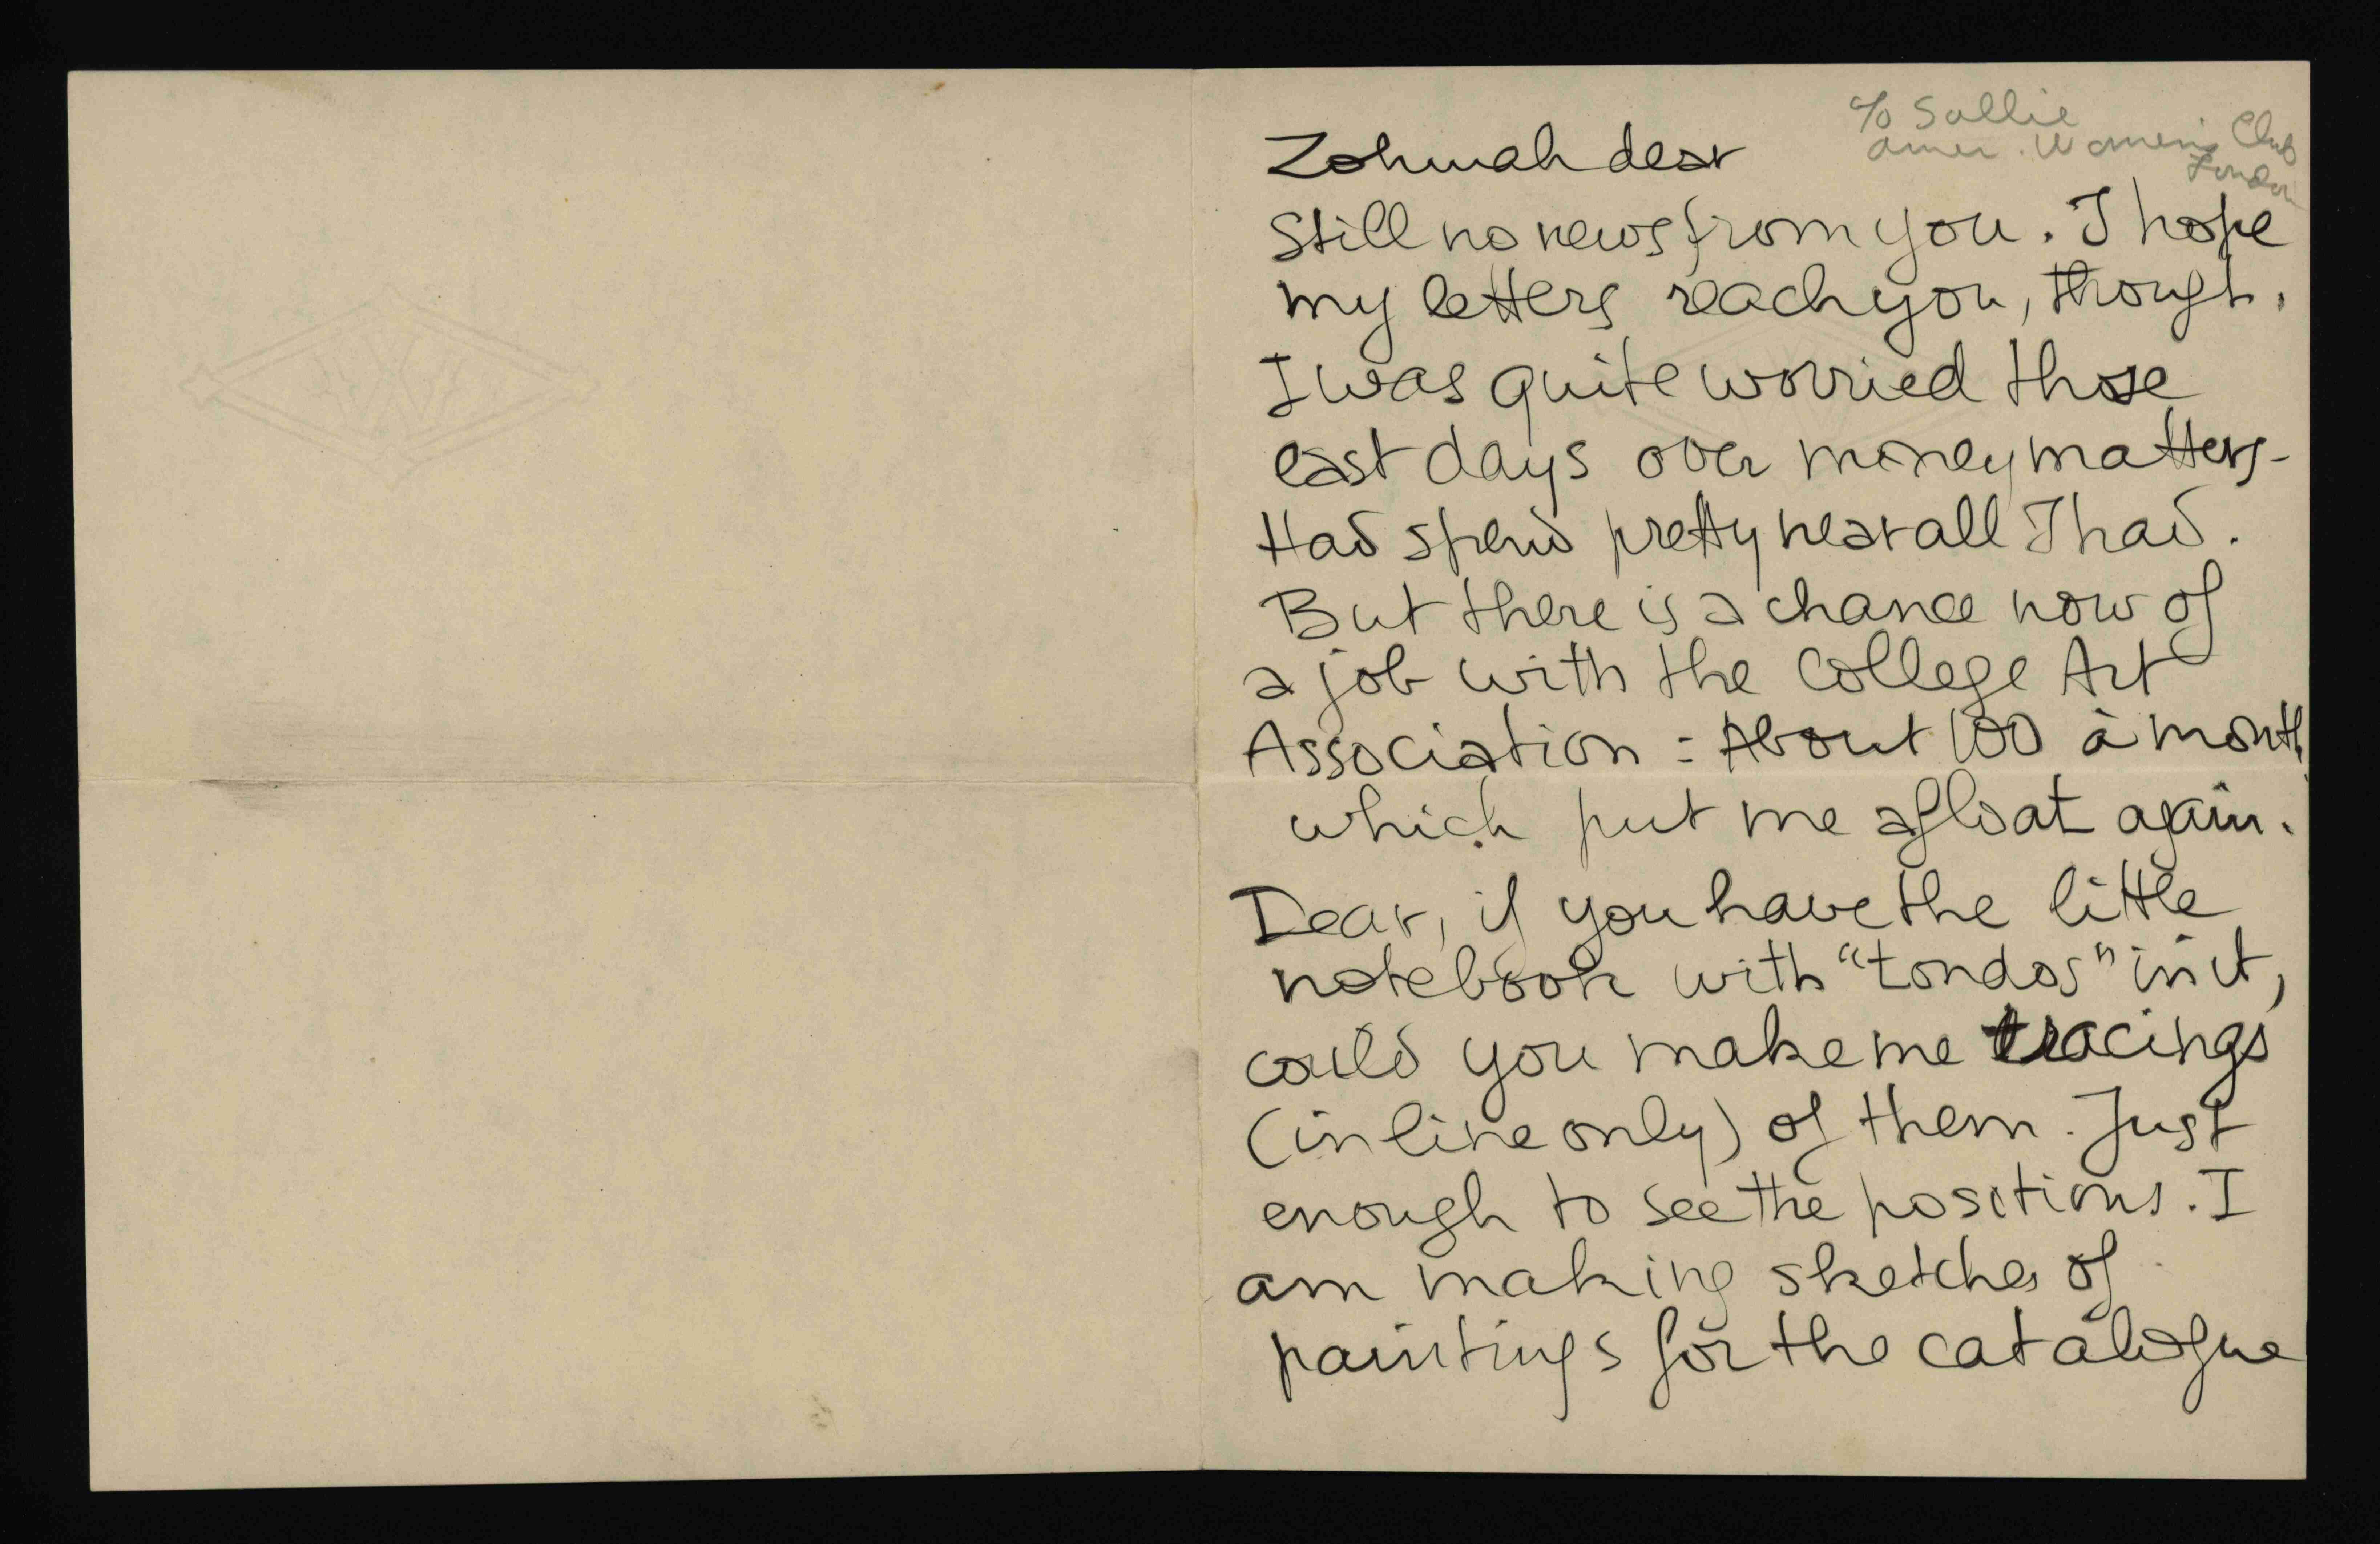 c/o Sallie
Amer. Women's Club
London
Zohmah dear
Still no news from you. I hope
my letters reach you, though.
I was quite worried those
last days over money matters-
Had spend pretty near all I had.
But there is a chance now of
a job with the College Art
Association : About 100 a month
which put me afloat again.
Dear, if you have the little
notebook with "tondos" in it,
could you make me tracings
(in line only) of them. Just
enough to see the positions. I
am making sketches of
paintings for the catalogue